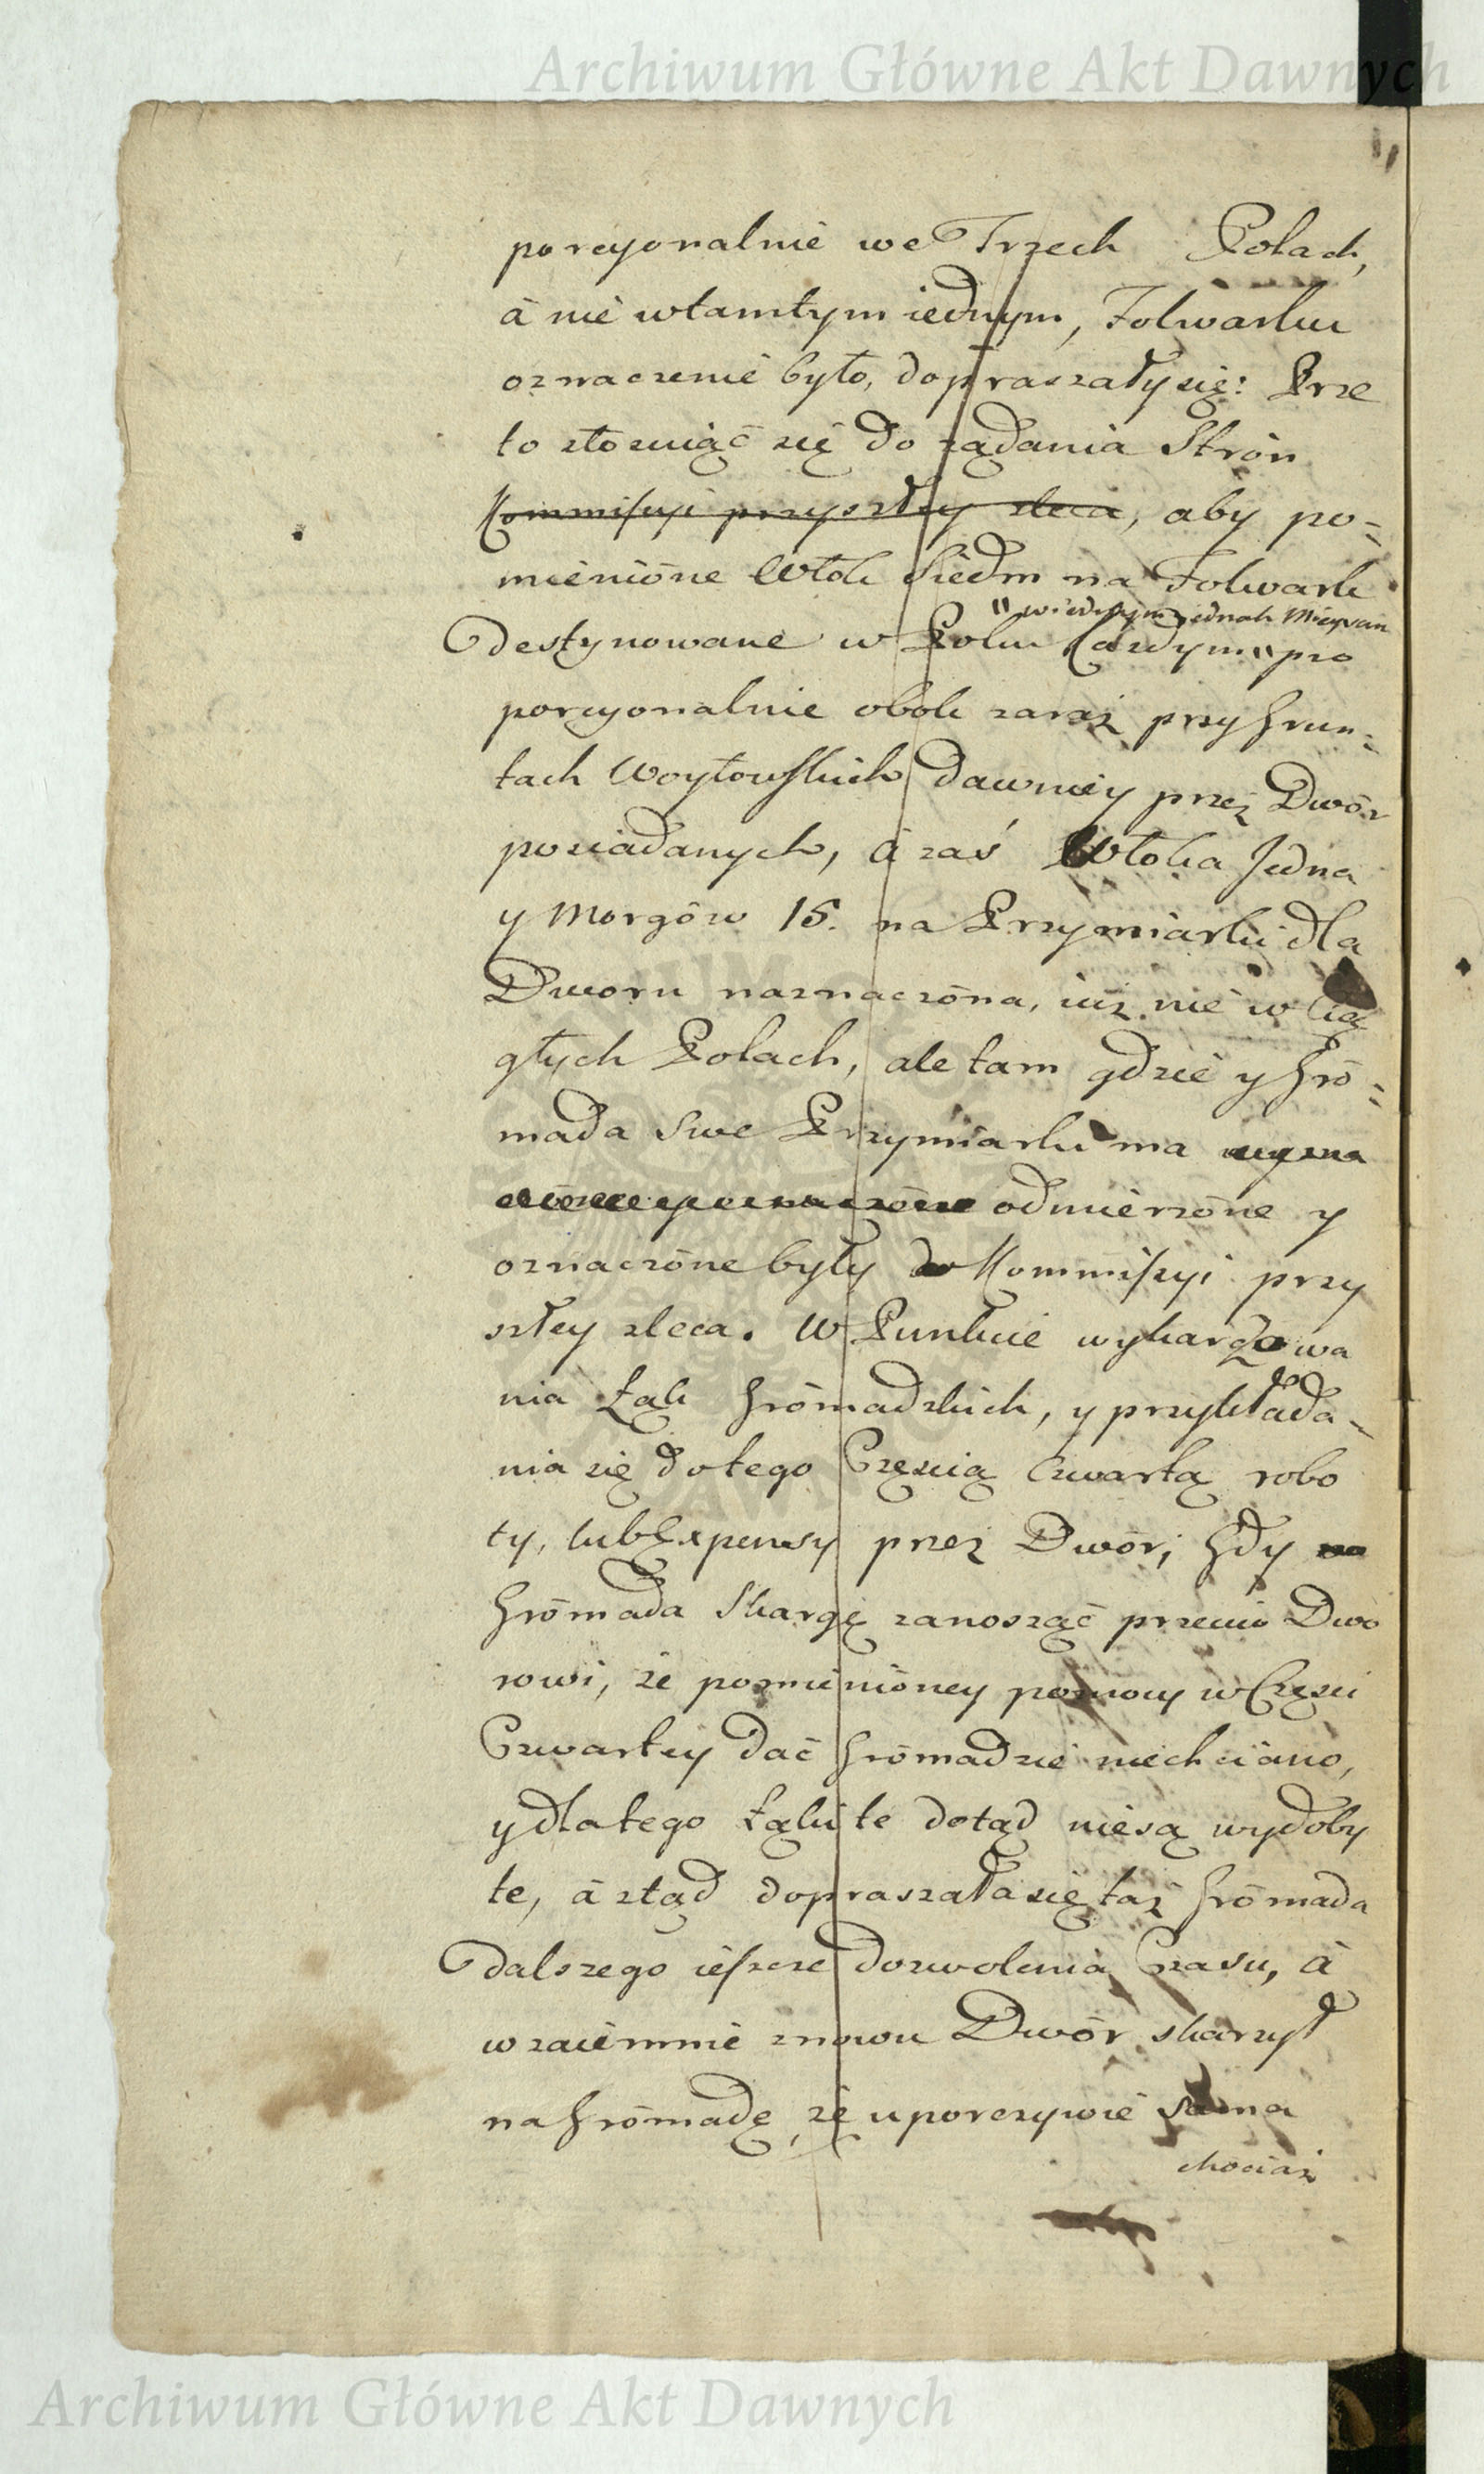 Archiwum Główne Akt Dawnych
porcyonalnie we Trzech Polach,
à nie wtamtym iednym, Folwarku
oznaczenie było, dopraszały się: Prze
to stosuiąc się do rządania Strón
Kommissyi przyszłey zleca, aby po=
mienióne Włók Siedm na Folwark
" wiednym iednak Mieyscu
Destynowane w Polu Każdym " pro
porcyonalnie obok zaraz przy Grun=
tach Woytowskich dawniey przez Dwór
posiadanych, à zaś Włoka Jedna
y Morgów 15. na Przymiarki dla
Dworu naznaczóna, iuż nie w Cią
głych Polach, ale tam gdzie y Gró=
mada swe Przymiarki ma
odmierzóne y
oznaczóne były Kommissyi przy
szłey zleca. W Punkcie wykarczowa
nia Łąk Grómadzkich, y przykłada-
nia się do tego Częscią Czwartą robo
ty, lub Expensy przez Dwór, Gdy
Grómada Skargę zanosząc przeciw Dwo
rowi, że pomienióney pomocy w Częsci
Czwartey dać Grómadzie niechciano,
y dla tego Łąki te dotąd niesą wydoby
te, à ztąd dopraszała się taż Grómada
dalszego ieszcze dozwolenia Czasu, à
wzaiemnie znowu Dwór skarzył
na Grómadę, że uporczywie sama
chociaż
Archiwum Główne Akt Dawnych